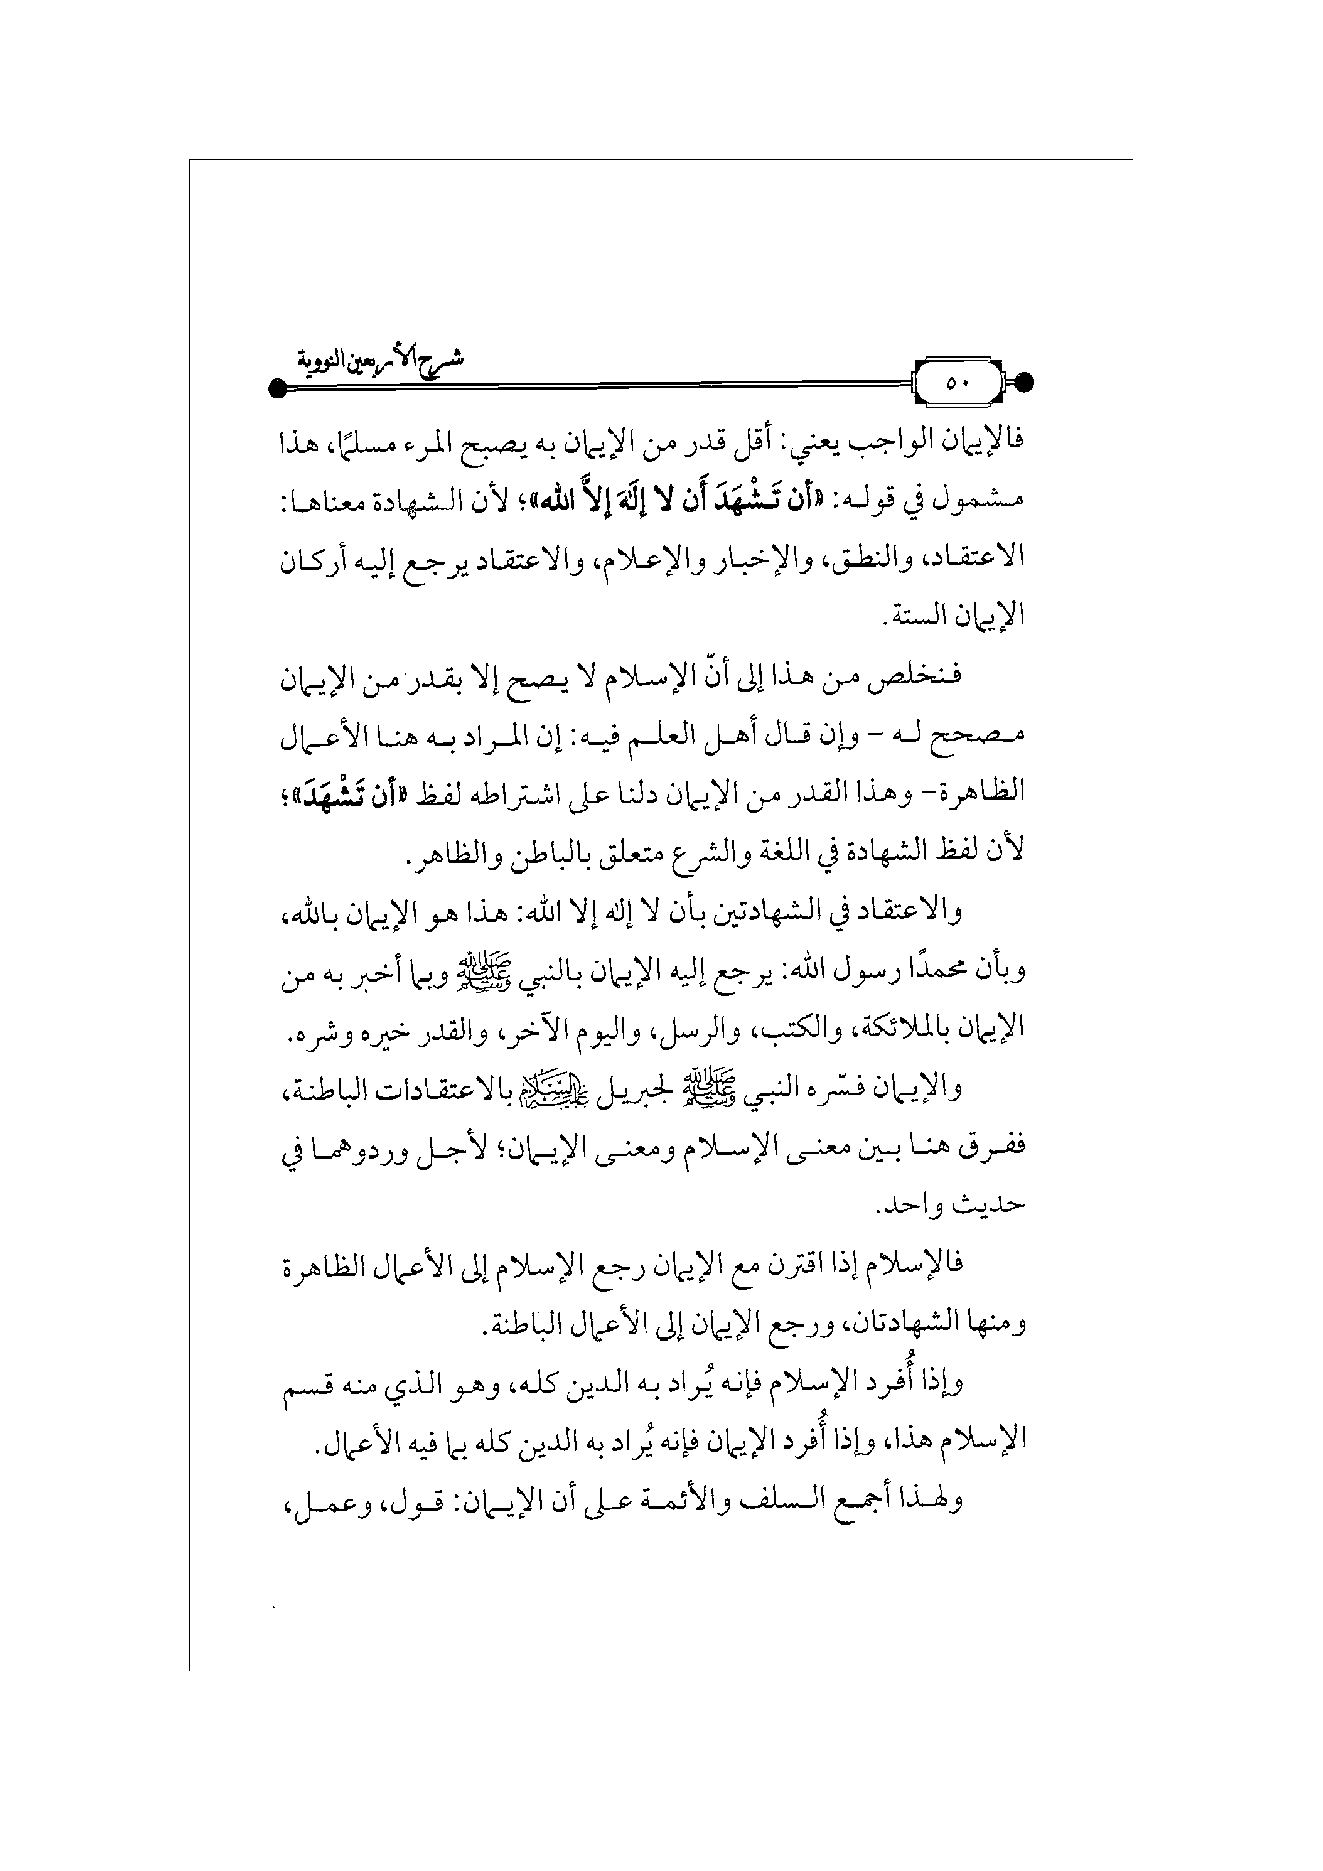 شرح الأربعين النووية
٥٠
فالإيمان الواجب يعني: أقل قدر من الإيمان به يصبح المرء مسلمًا، هذا
مشمول في قوله: «أن تَشْهَدَ أَن لا إلَهَ إلاَّ الله»؛ لأن الشهادة معناها:
الاعتقاد، والنطق، والإخبار والإعلام، والاعتقاد يرجع إليه أركان
الإيمان الستة.
فنخلص من هذا إلى أنّ الإسلام لا يصح إلا بقدر من الإيمان
مصحح له – وإن قال أهل العلم فيه: إن المراد به هنا الأعمال
الظاهرة– وهذا القدر من الإيمان دلنا على اشتراطه لفظ «أن تَشْهَدَ»؛
لأن لفظ الشهادة في اللغة والشرع متعلق بالباطن والظاهر.
والاعتقاد في الشهادتين بأن لا إله إلا الله: هذا هو الإيمان بالله،
وبأن محمدًا رسول الله: يرجع إليه الإيمان بالنبي ﷺ وبما أخبر به من
الإيمان بالملائكة، والكتب، والرسل، واليوم الآخر، والقدر خيره وشره.
والإيمان فسّره النبي ﷺ لجبريل عليه السلام بالاعتقادات الباطنة،
ففرق هنا بين معنى الإسلام ومعنى الإيمان؛ لأجل ورودهما في
حديث واحد.
فالإسلام إذا اقترن مع الإيمان رجع الإسلام إلى الأعمال الظاهرة
ومنها الشهادتان، ورجع الإيمان إلى الأعمال الباطنة.
وإذا أُفرد الإسلام فإنه يُراد به الدين كله، وهو الذي منه قسم
الإسلام هذا، وإذا أُفرد الإيمان فإنه يُراد به الدين كله بما فيه الأعمال.
ولهذا أجمع السلف والأئمة على أن الإيمان: قول، وعمل،